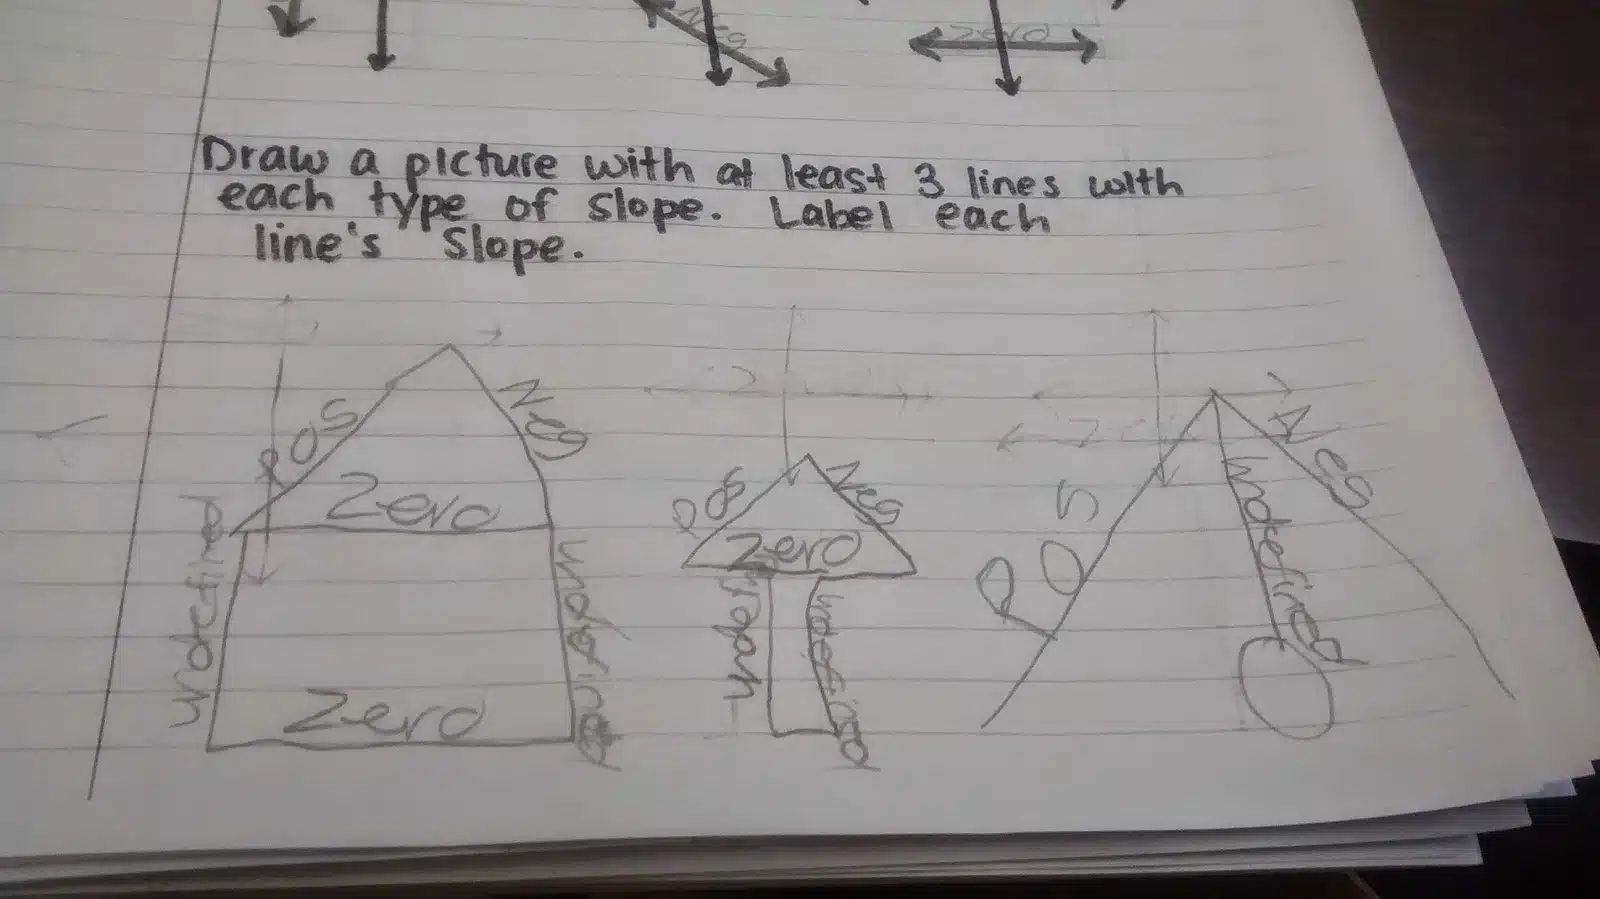 Neg
zero
Draw a picture with at least 3 lines with
each type of slope. Label each
line's slope.
Pos
Neg
Zero
undefined
undefined
Zero
Pos
Neg
Zero
undef
undefined
Pos
Neg
undefined